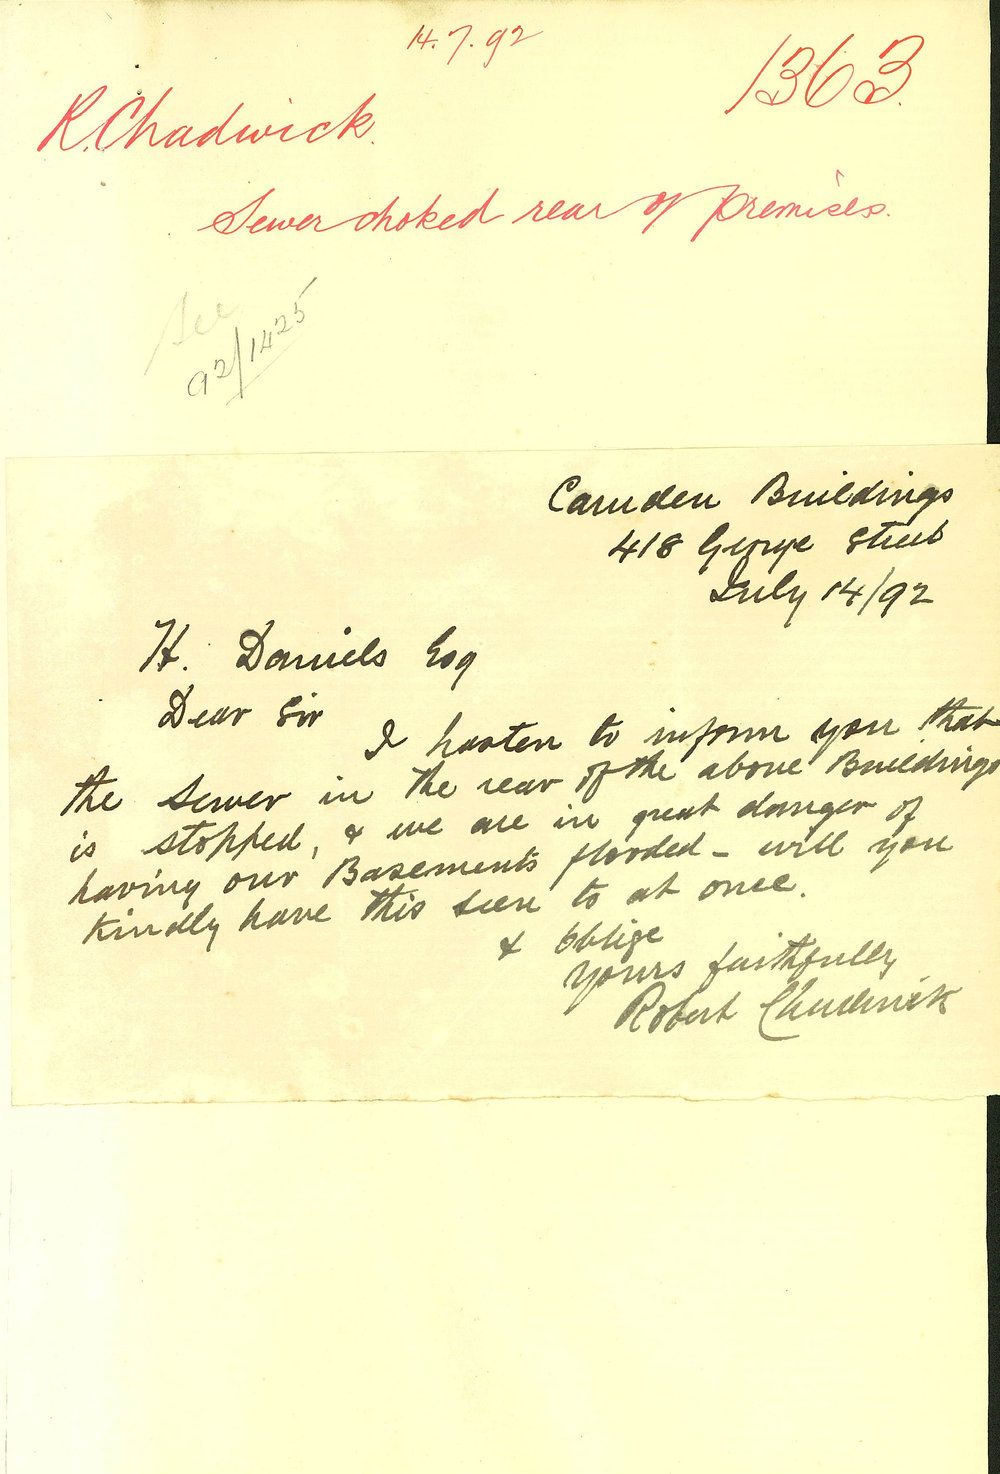 14.7.92
1363.
R. Chadwick.
Sewer choked rear of premises.
See
92/1425
Camden Buildings
418 George Street
July 14/92
H. Daniels Esq
Dear Sir
I hasten to inform you that
the Sewer in the rear of the above Buildings
is stopped, & we are in great danger of
having our Basements flooded - will you
kindly have this seen to at once.
& oblige
yours faithfully
Robert Chadwick